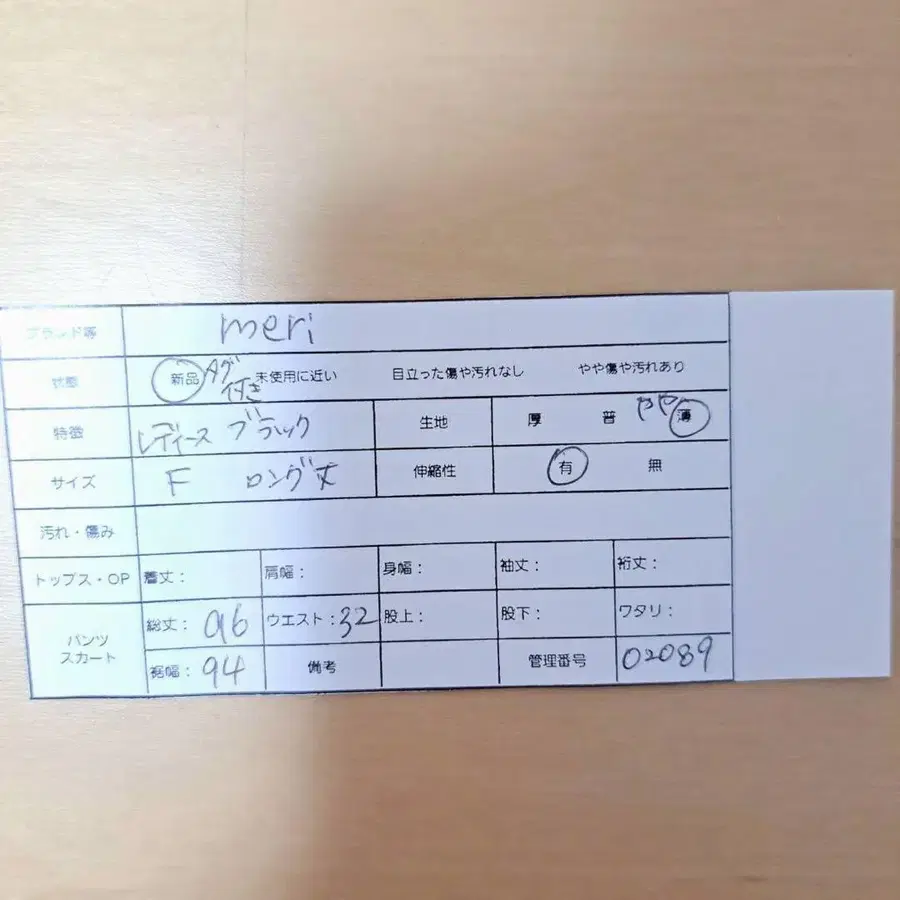 ブランド等 meri
状態 新品 タグ付き 未使用に近い 目立った傷や汚れなし やや傷や汚れあり
特徴 レディース ブラック 生地 厚 普 やや薄
サイズ F ロング丈 伸縮性 有 無
汚れ・傷み
トップス・OP 着丈： 肩幅： 身幅： 袖丈： 裄丈：
パンツ スカート 総丈：96 ウエスト：32 股上： 股下： ワタリ：
裾幅：94 備考 管理番号 02089